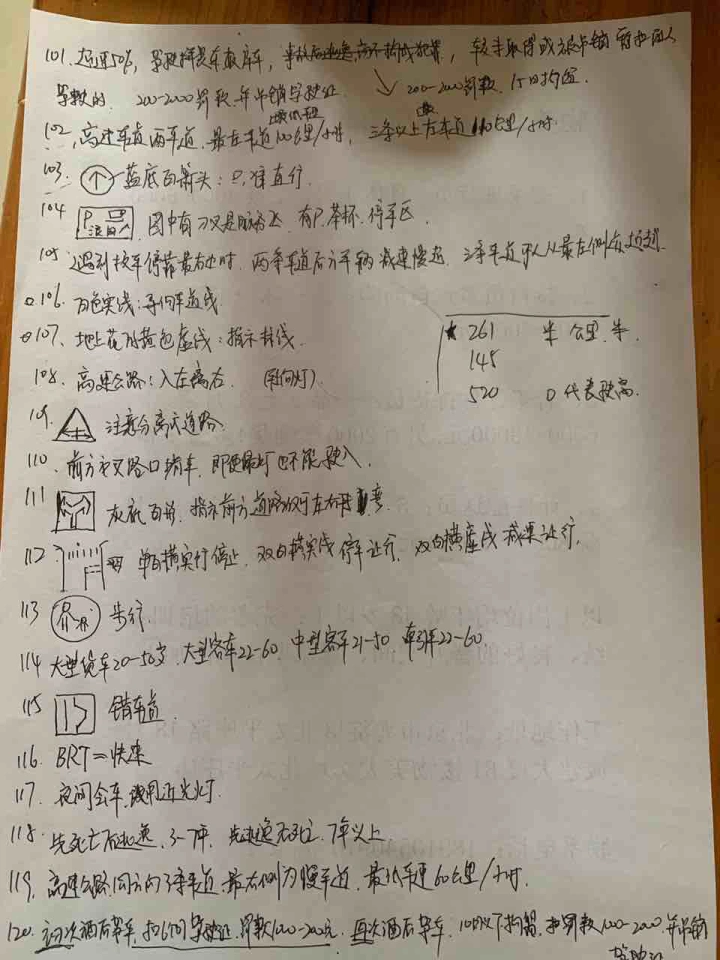 101. 超速50%, 驾驶拼装车报废车, 未取得或被吊销
驾驶的. 200-2000罚款 并吊销驾驶证. 200-2000罚款, 15日拘留.
最低
102、高速车道两车道, 最左车道100公里/小时, 三条以上左车道110公里/小时.
103. 蓝底白箭头: 只准直行.
104 P 图中有刀叉是 有P.茶杯.停车区.
105 遇到校车停靠最右边时. 两条车道后方车辆减速慢 三条车道可以从最左侧
106. 白色实线: 导向车道线.
107、地上 黄色虚线: 指示
108. 高速公路: 入左离右. (转向灯)
109. 注意分离式道路
110. 前方交叉路口堵车, 即使绿灯也不能驶入.
111 灰底白 指示前方道路仅可左右转
112 单白横实线停止 双白横实线停车让行, 双白横虚线减速让行,
113 步行.
114 大型货车20-50岁, 大型客车22-60, 中型客车21-50 牵引车22-60
115 错车道
116. BRT=快速
117. 夜间会车,使用近光灯.
118. 先死亡后逃逸, 3-7年, 先逃逸 7年以上
119, 高速公路同方向3条车道, 最右侧为慢车道, 最低车速60公里/小时.
120. 初次酒后驾车, 扣6个月驾驶证, 罚款1000-2000元. 再次酒后驾车, 10日以下拘留, 扣罚款1000-2000 并吊销
驾驶证
★ 261 半 公里. 半.
145
520 0 代表